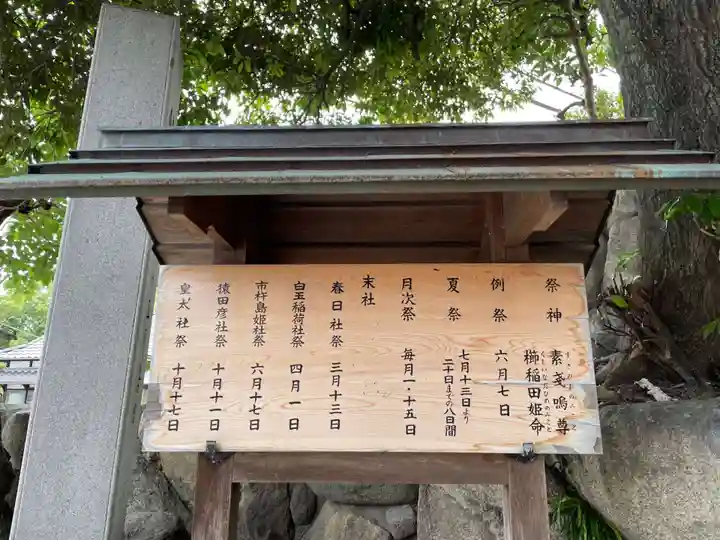 祭神 素戔嗚尊
すさのおのみこと
櫛稲田姫命
くしいなだひめのみこと
例祭 六月七日
夏祭 七月十三日より
二十日までの八日間
月次祭 毎月一・十五日
末社
春日社祭 三月十三日
白玉稲荷社祭 四月一日
市杵島姫社祭 六月十七日
猿田彦社祭 十月十一日
皇太社祭 十月十七日